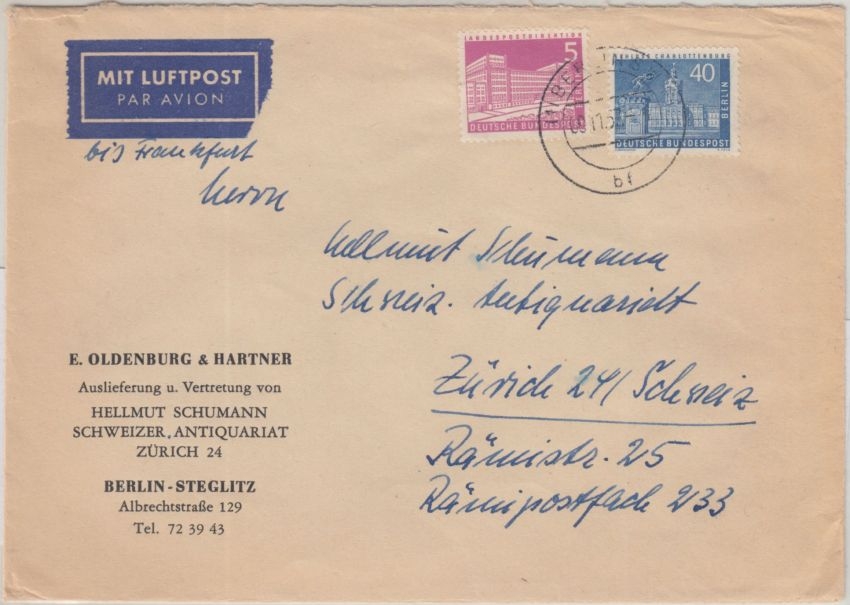 MIT LUFTPOST
PAR AVION
bis Frankfurt
LANDESPOSTDIREKTION
5
BERLIN
DEUTSCHE BUNDESPOST
SCHLOSS CHARLOTTENBURG
40
BERLIN
DEUTSCHE BUNDESPOST
bf
Herrn
Hellmut Schumann
Schweiz. Antiquariat
Zürich 24/ Schweiz
Rämistr. 25
Rämipostfach 233
E. OLDENBURG & HARTNER
Auslieferung u. Vertretung von
HELLMUT SCHUMANN
SCHWEIZER ANTIQUARIAT
ZÜRICH 24
BERLIN-STEGLITZ
Albrechtstraße 129
Tel. 72 39 43